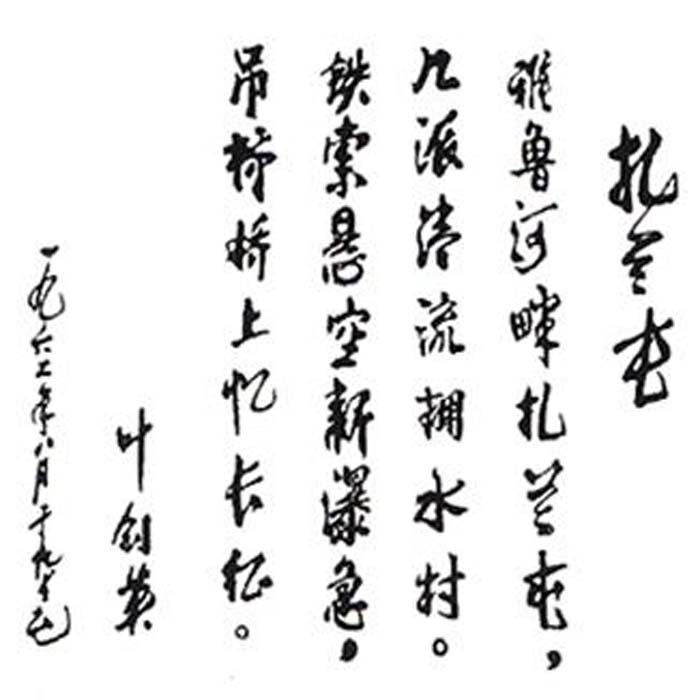 扎兰屯
雅鲁河畔扎兰屯，
几派清流拥水村。
铁索悬空新瀑急，
吊桥桥上忆长征。
叶剑英
一九六二年八月二十九